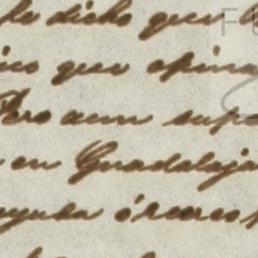 le dicho que
ico que opina
Pero aun supo
en Guadalaja
ayuda